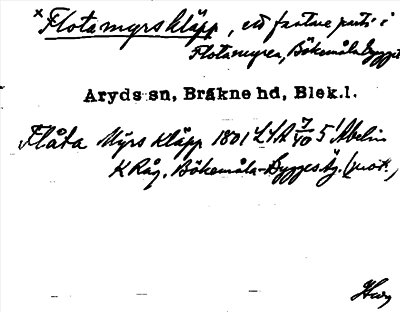 × Flotamyrs kläpp, ett fastare parti i
Flotamyren, Bökemåla bygget
Aryds sn, Bräkne hd, Blek.l.
Flåta Myrs kläpp 1801 LSA 7/40 5' Abelin
K Råg. Bökemåla-Bygges äg. (mot.)